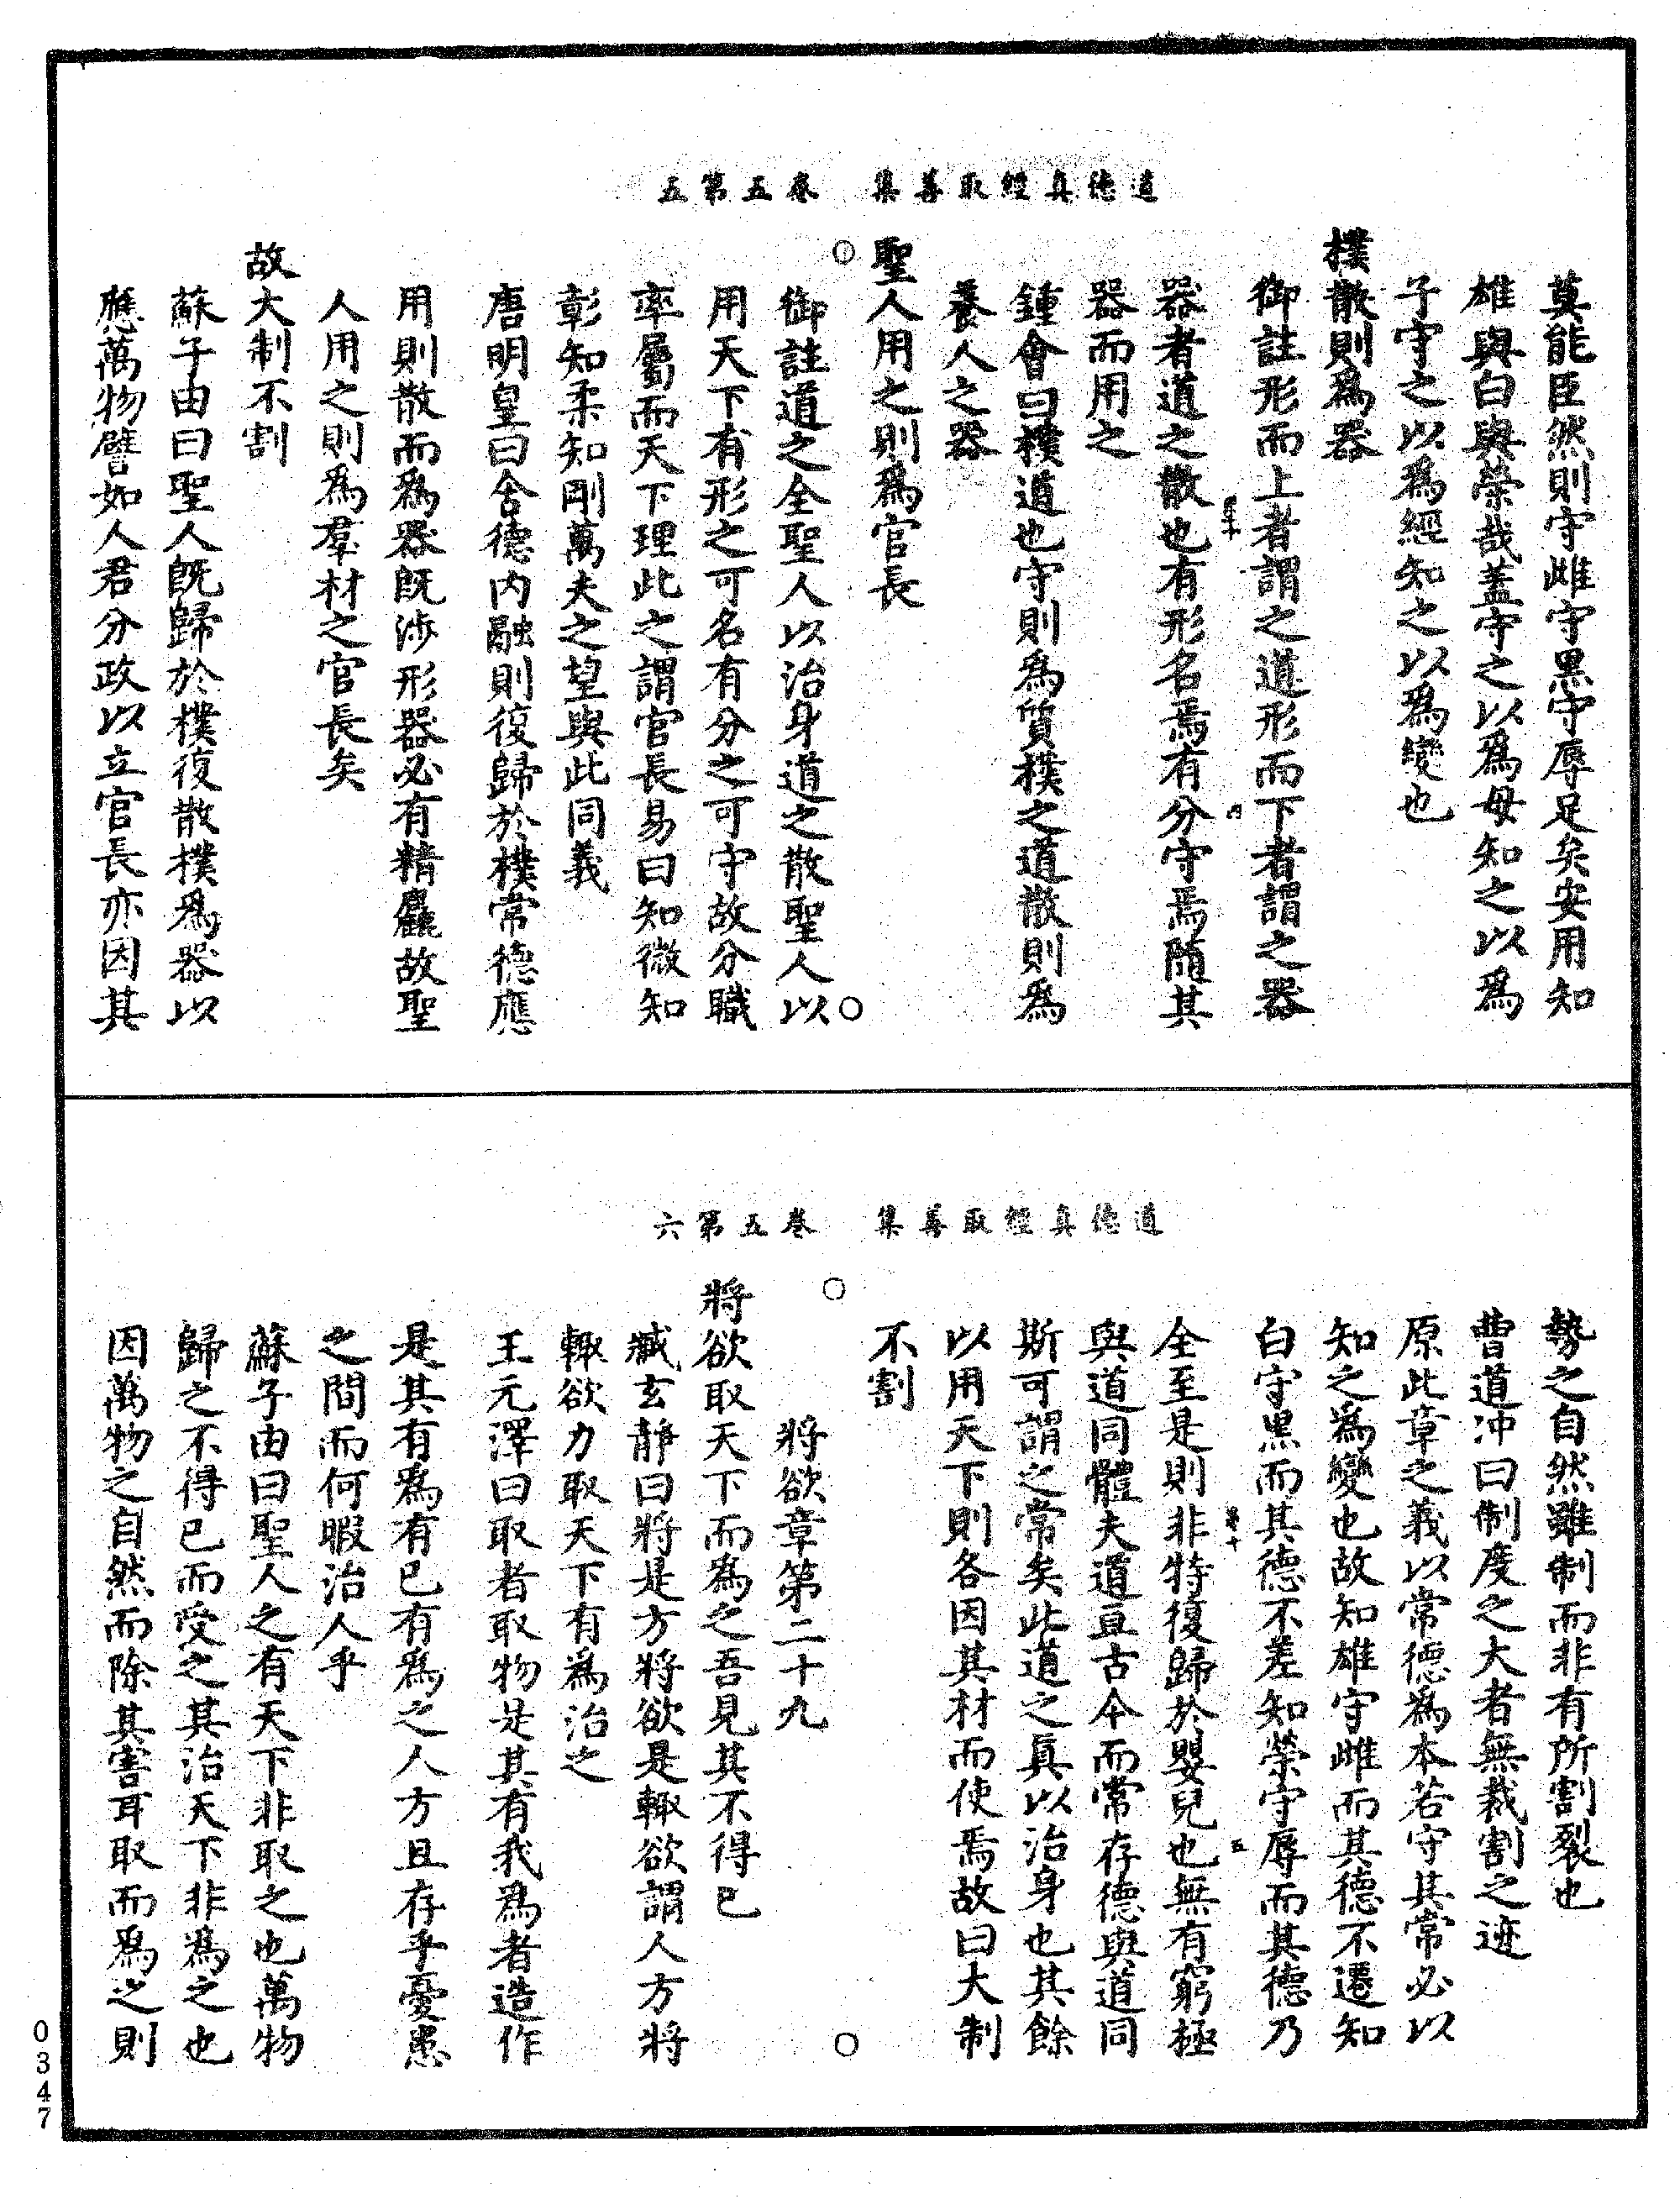 道德真經取善集　卷五第五
莫能臣然則守雌守黑守辱足矣安用知
雄與白與榮哉蓋守之以爲母知之以爲
子守之以爲經知之以爲變也
樸散則爲器
御註形而上者謂之道形而下者謂之器
器者道之散也有形名焉有分守焉隨其
器而用之
鍾會曰樸道也守則爲質樸之道散則爲
養人之器
聖人用之則爲官長
御註道之全聖人以治身道之散聖人以
用天下有形之可名有分之可守故分職
率屬而天下理此之謂官長易曰知微知
彰知柔知剛萬夫之望與此同義
唐明皇曰含德内融則復歸於樸常德應
用則散而爲器既涉形器必有精麤故聖
人用之則爲羣材之官長矣
故大制不割
蘇子由曰聖人既歸於樸復散樸爲器以
應萬物譬如人君分政以立官長亦因其
道德真經取善集　卷五第六
勢之自然雖制而非有所割裂也
曹道冲曰制度之大者無裁割之迹
原此章之義以常德爲本若守其常必以
知之爲變也故知雄守雌而其德不遷知
白守黑而其德不差知榮守辱而其德乃
全至是則非特復歸於嬰兒也無有窮極
與道同體夫道亘古今而常存德與道同
斯可謂之常矣此道之真以治身也其餘
以用天下則各因其材而使焉故曰大制
不割
將欲章第二十九
將欲取天下而爲之吾見其不得已
臧玄靜曰將是方將欲是輙欲謂人方將
輙欲力取天下有爲治之
王元澤曰取者取物是其有我爲者造作
是其有爲有已有爲之人方且存乎憂患
之間而何暇治人乎
蘇子由曰聖人之有天下非取之也萬物
歸之不得已而受之其治天下非爲之也
因萬物之自然而除其害耳取而爲之則
0347